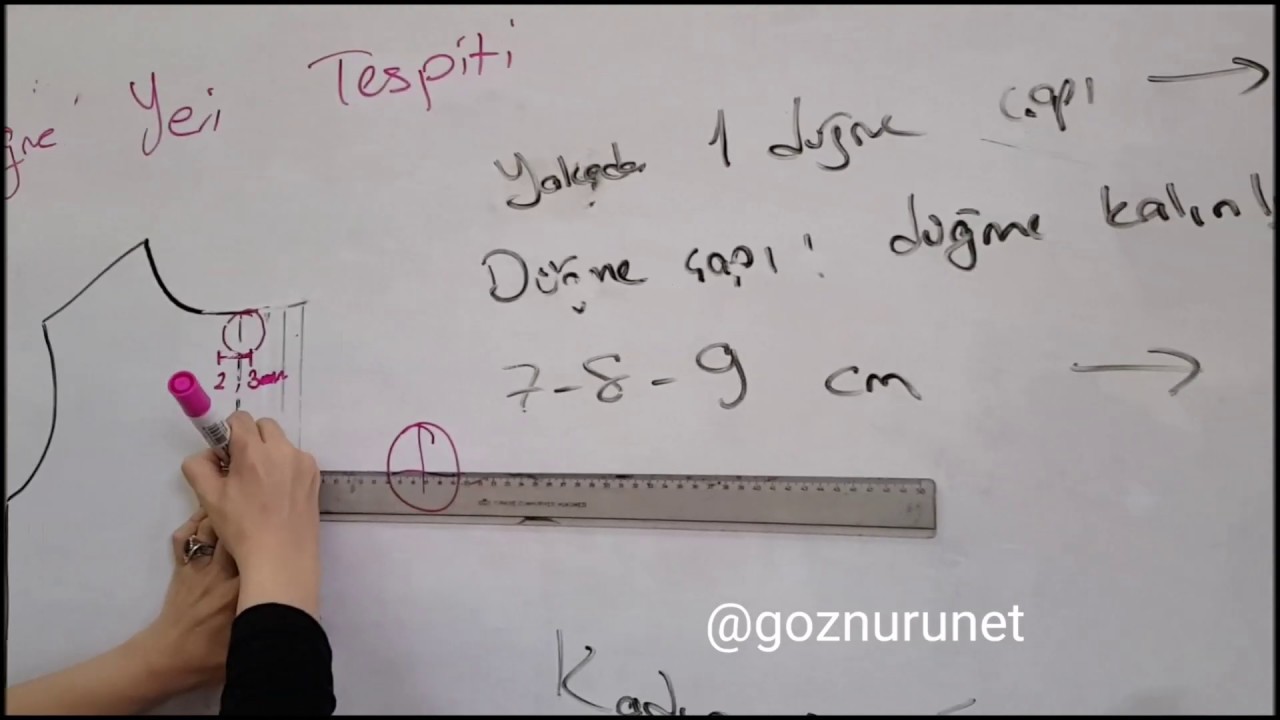 ğne Yeri Tespiti
Yakada 1 düğme çapı →
Düğme çapı: düğme kalınl
7-8-9 cm →
2, 3mm
@goznurunet
Kadı